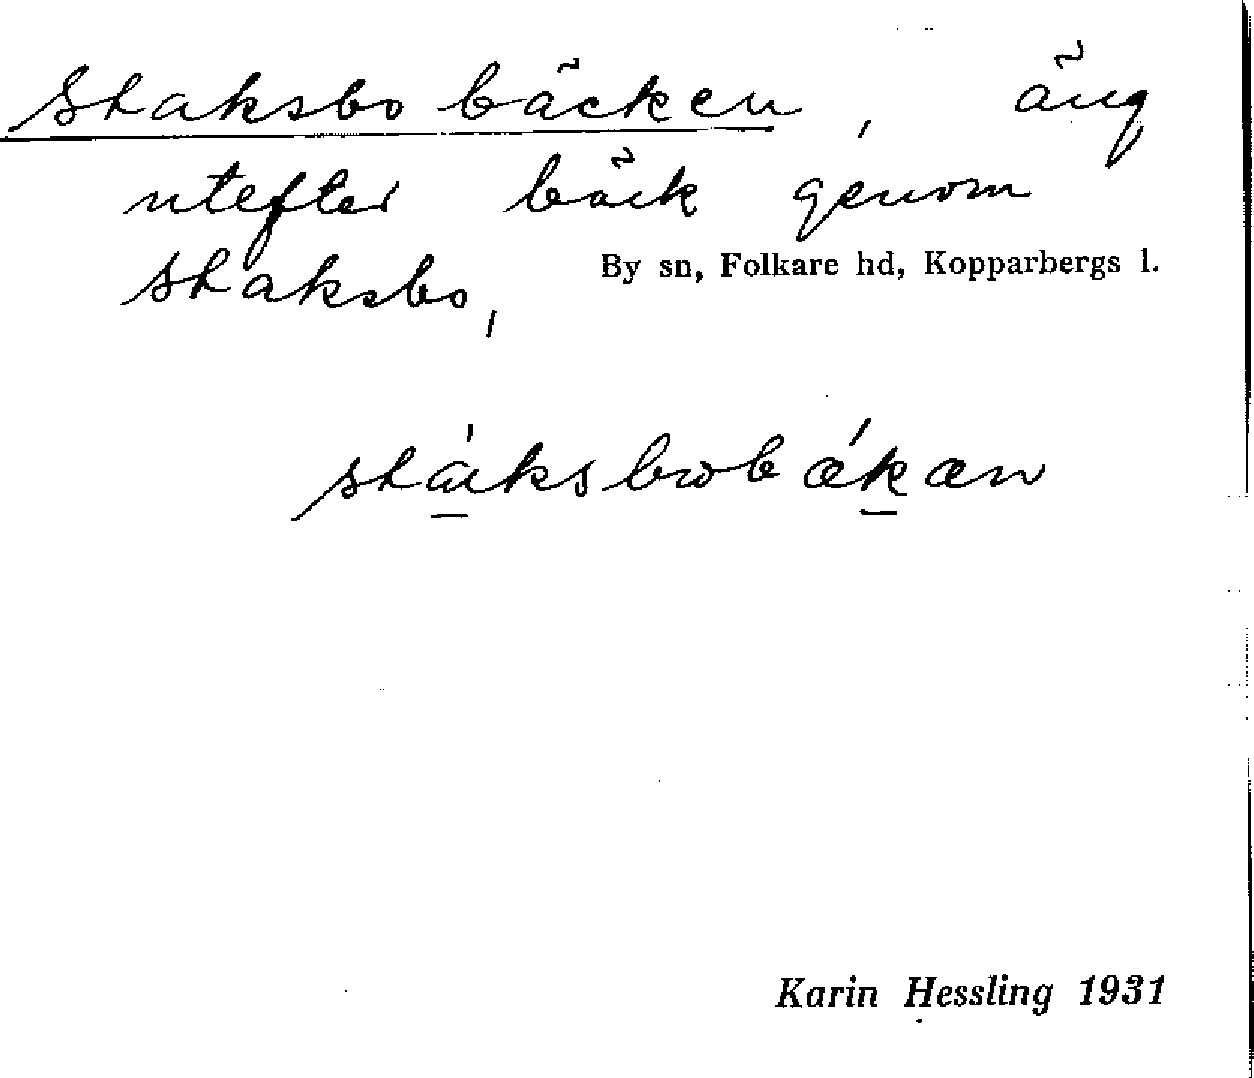 Staksbobäcken, äng
utefter bäck genom
Staksbo,
By sn, Folkare hd, Kopparbergs l.
Karin Hessling 1931